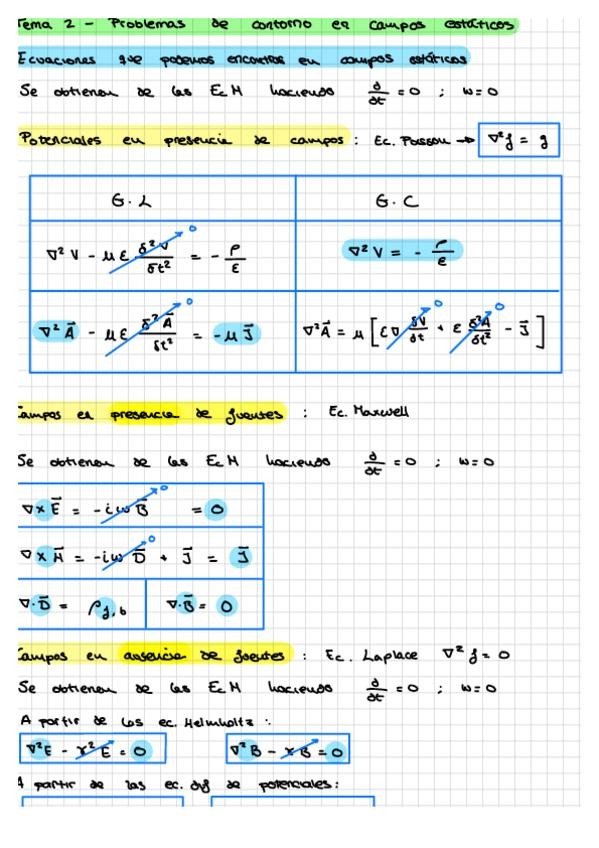 Tema 2 - Problemas de contorno en campos estáticos
Ecuaciones que podemos encontrar en campos estáticos
Se obtienen de las EcM haciendo ∂/∂t = 0 ; w = 0
Potenciales en presencia de campos : Ec. Poisson → ∇²f = g
G.L
G.C
∇²V - με δ²V/δt² = - ρ/ε
0
∇²V = - ρ/ε
∇²A⃗ - με δ²A⃗/δt² = -μJ⃗
0
∇²A⃗ = μ[ε∇ δV/δt + ε δ²A⃗/δt² - J⃗]
0 0
Campos en presencia de fuentes : Ec. Maxwell
Se obtienen de las EcM haciendo ∂/∂t = 0 ; w = 0
∇xE⃗ = -iwB⃗ = 0
0
∇xH⃗ = -iwD⃗ + J⃗ = J⃗
0
∇·D⃗ = ρf,b
∇·B⃗ = 0
Campos en ausencia de fuentes : Ec. Laplace ∇²f = 0
Se obtienen de las EcM haciendo ∂/∂t = 0 ; w = 0
A partir de las ec. Helmholtz :
∇²E - γ²E = 0
∇²B - γB = 0
A partir de las ec. dif de potenciales: